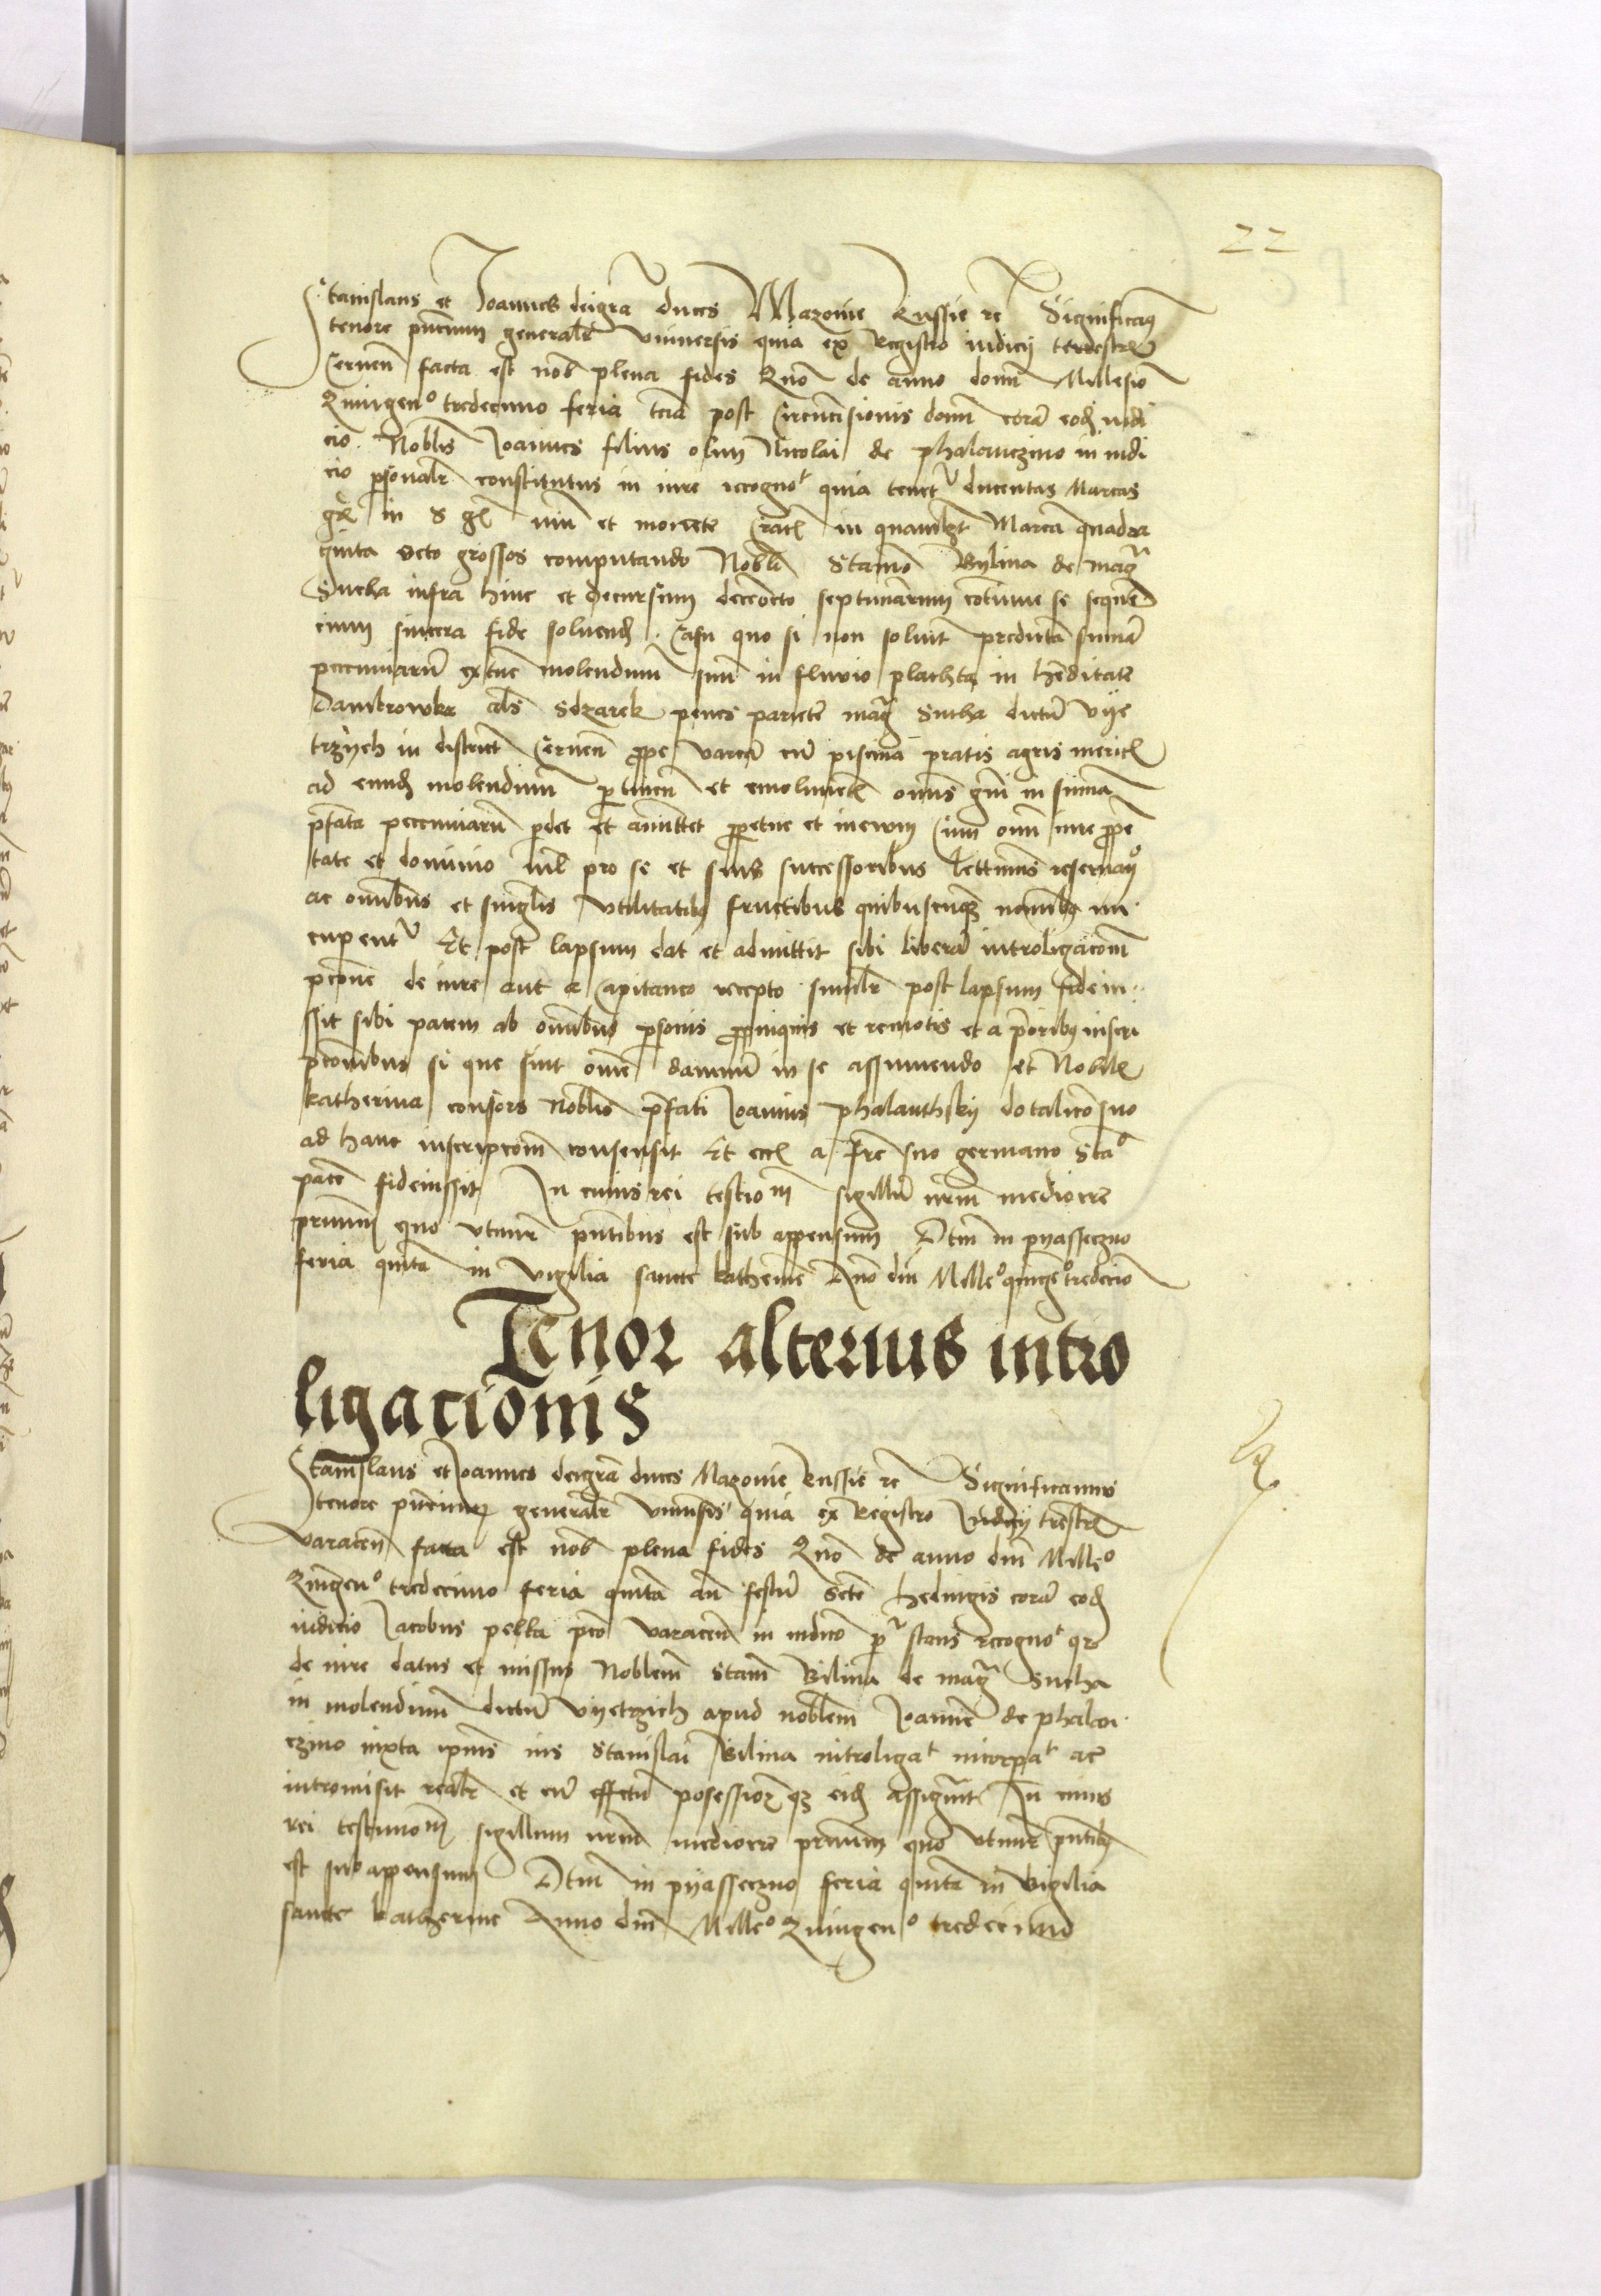 22
Stanislaus et Joannes deigra duces Mazovie Russie rc Significamus
tenore pntium generalr universis quia ex Registro iudicij terrestris
Cernen facta est nob plena fides Quo de anno domi Millesio
Quingen° tredecimo feria tcia post Circucisionis domi cora eod iudi
cio Noblis Joannes filius olim Nicolai de phalanczino in iudi
cio psonalr constitutus in iure recogno^t quia tenet^r ducentas Marcas
in nu et monete in quamlzt Marca quadra
ginta octo grossos computando Nobli Stanio Bylina de mag^a
Sucha infra hinc et decursum deceocto septimanarum cotinue se sequen
cium sincera fide solvend Casu quo si non solvit predicta suma
pecuniaru extuc molendinum suu in fluvio plachta in heditate
Dambrowka als Sdzarek penes pariete mag^a Sucha dictu Vye
trzych in districtu Cernen prope varca cu piscina pratis agris mericis
ad eund molendinum ptinen et emolumetis omis gnis in suma
pfata pecuniaru pdet et amittet ppetue et in evum Cum omni iure prope
tate et dominio nil pro se et suis successoribus lettimis reservan°
ac omibus et singlis utilitatibus fructibus quibuscunque nominibus nu
cupent^r Et post lapsum dat et admittit sibi libera introligacom
pcone de iure aut a Capitaneo recepto similr post lapsum fidein
ssit sibi pacem ab omnibus psonis propinquis et remotis et a prioribus inscri
pconibus si que sint omne damnu in se assumendo et Nobilis
katherina consors Noblis pfati Joannis phalanthsky dotalico suo
ad hanc inscripcom consensit Et eciam a fre suo germano Sta°
pace fideiussit In cuius rei testio^m sigillu nrm mediocre
primum quo utimur pntibus est sub appensum Dtum in pyasseczno
feria quita in vigilia sancte katherine Ano dni Mille° quige° tredecio
Tenor alterius intro
ligacionis
Stanislaus et Joannes deigra duces Mazovie Russie rc Significamus
tenore pntium generalr univsis quia ex Registro Iudicij trestris
varacen facta est nob plena fides Quo de anno dni Mille°
Quigen° tredecimo feria quita an festu Scte hedvigis cora eod
iudicio Jacobus pelka pco varacen in iudico p^r stans recogno^t qr
de iure datus et missus Noblem Stam Bilina de mag^a Sucha
in molendinu dictu Vyetrzich apud noblem Joanne de phalan
czino iuxta ipius ius Stanislai Bilina introliga^t incorpa^t ac
intromisit realr et cu effetu posessioz qz eid assignavit In cuius
rei testimo^m sigillum nrm mediocre primum quo utimur pntibus
est sub appensum Dtum in pyasseczno feria quita in vigilia
sancte katherine Anno dni Mille° Quingen° tredecimo